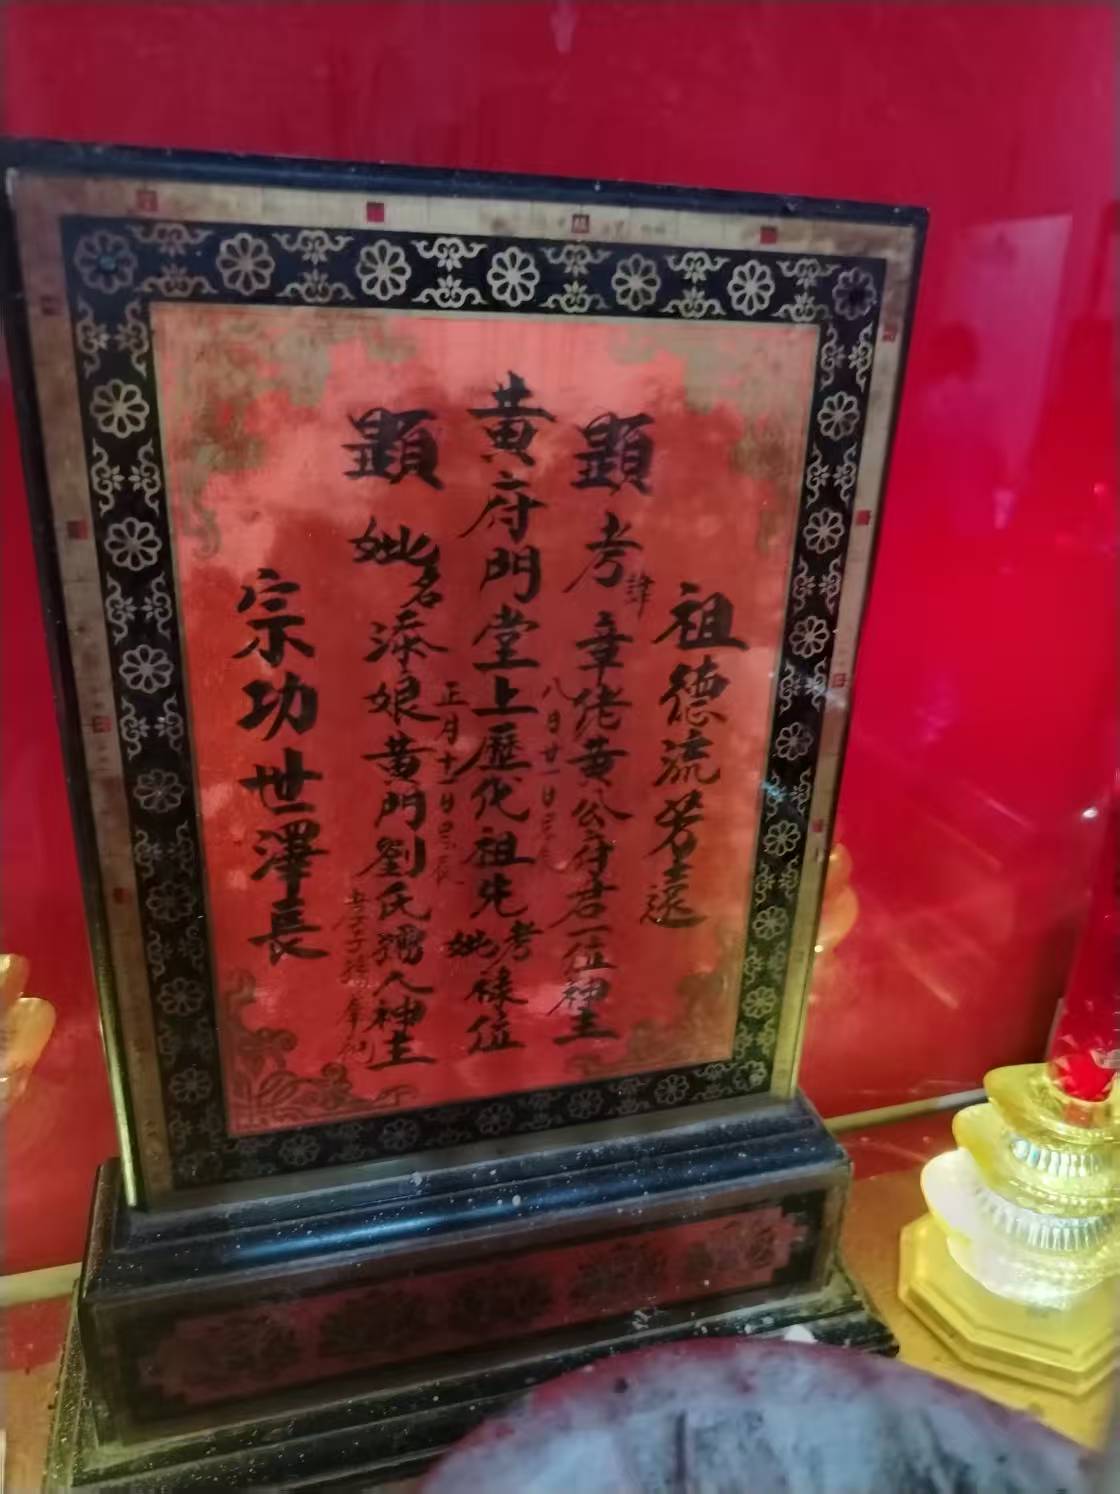 祖德流芳遠
顯考諱章佬黃公府君一位神主
八月廿一日
黃府門堂上歷代祖先考妣祿位
正月十一日
顯妣名添娘黃門劉氏孺人神主
宗功世澤長